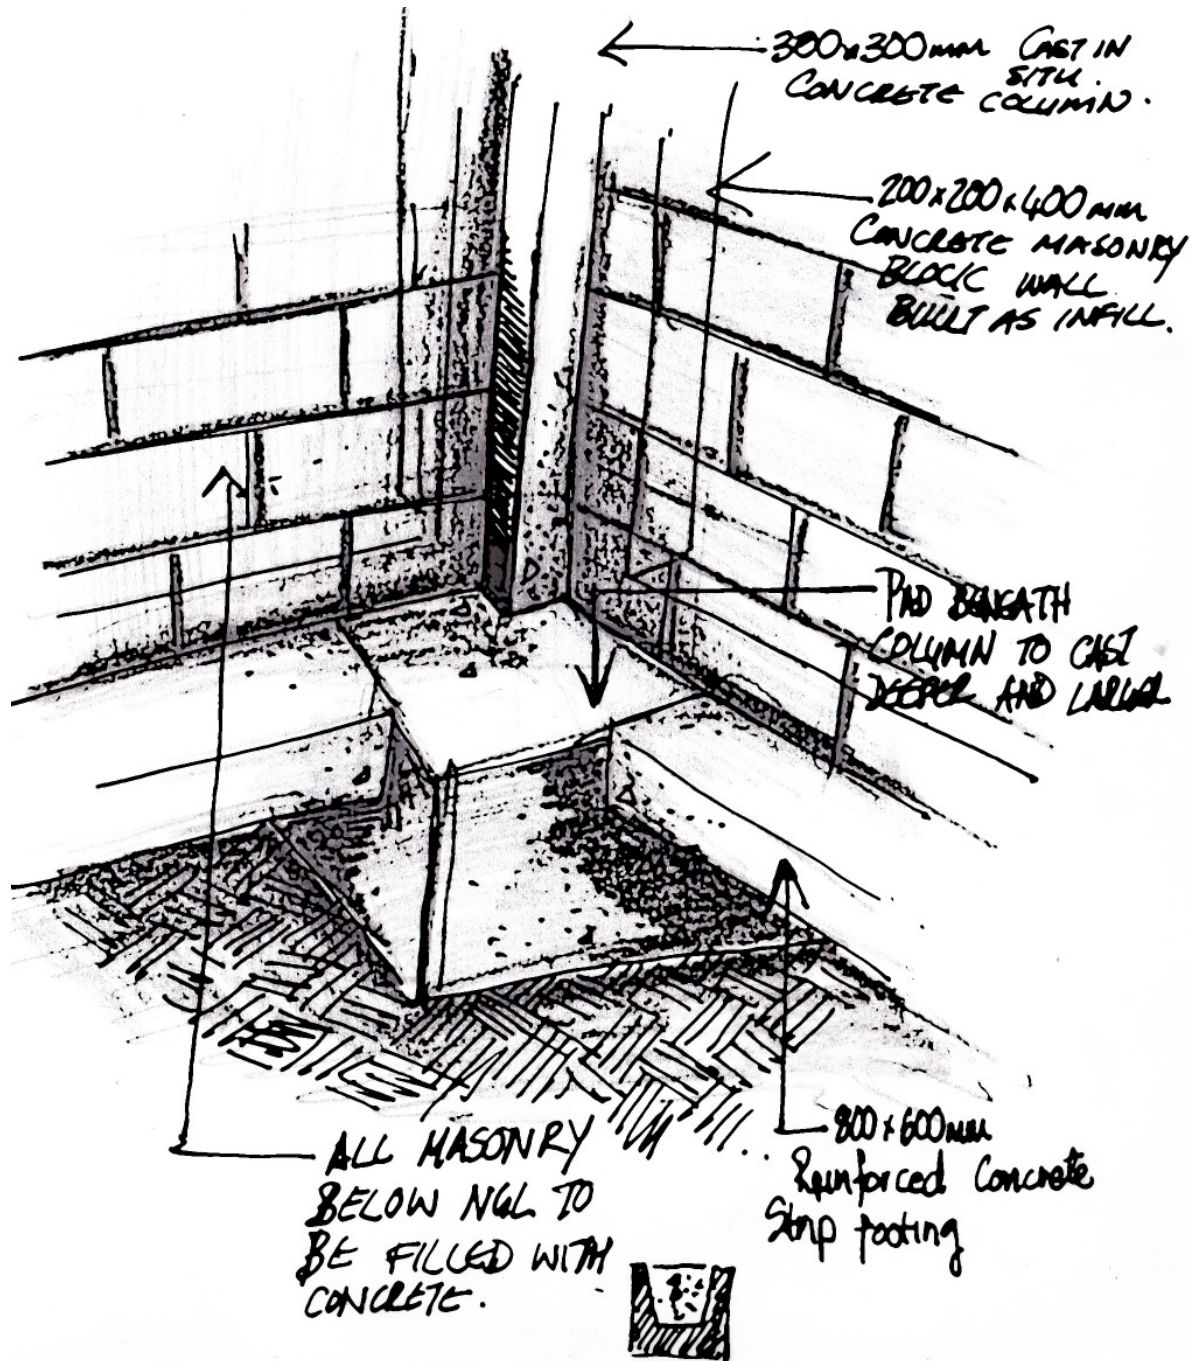 300x300mm CAST IN
SITU.
CONCRETE COLUMN.
200x200x400mm
CONCRETE MASONRY
BLOCK WALL
BUILT AS INFILL.
PAD BENEATH
COLUMN TO CAST
DEEPER AND LARGER
800x600mm
Reinforced Concrete
Strip footing
ALL MASONRY
BELOW NGL TO
BE FILLED WITH
CONCRETE.